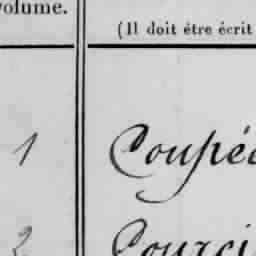 volume.
(Il doit être écrit
1 Coupée
2 Courci